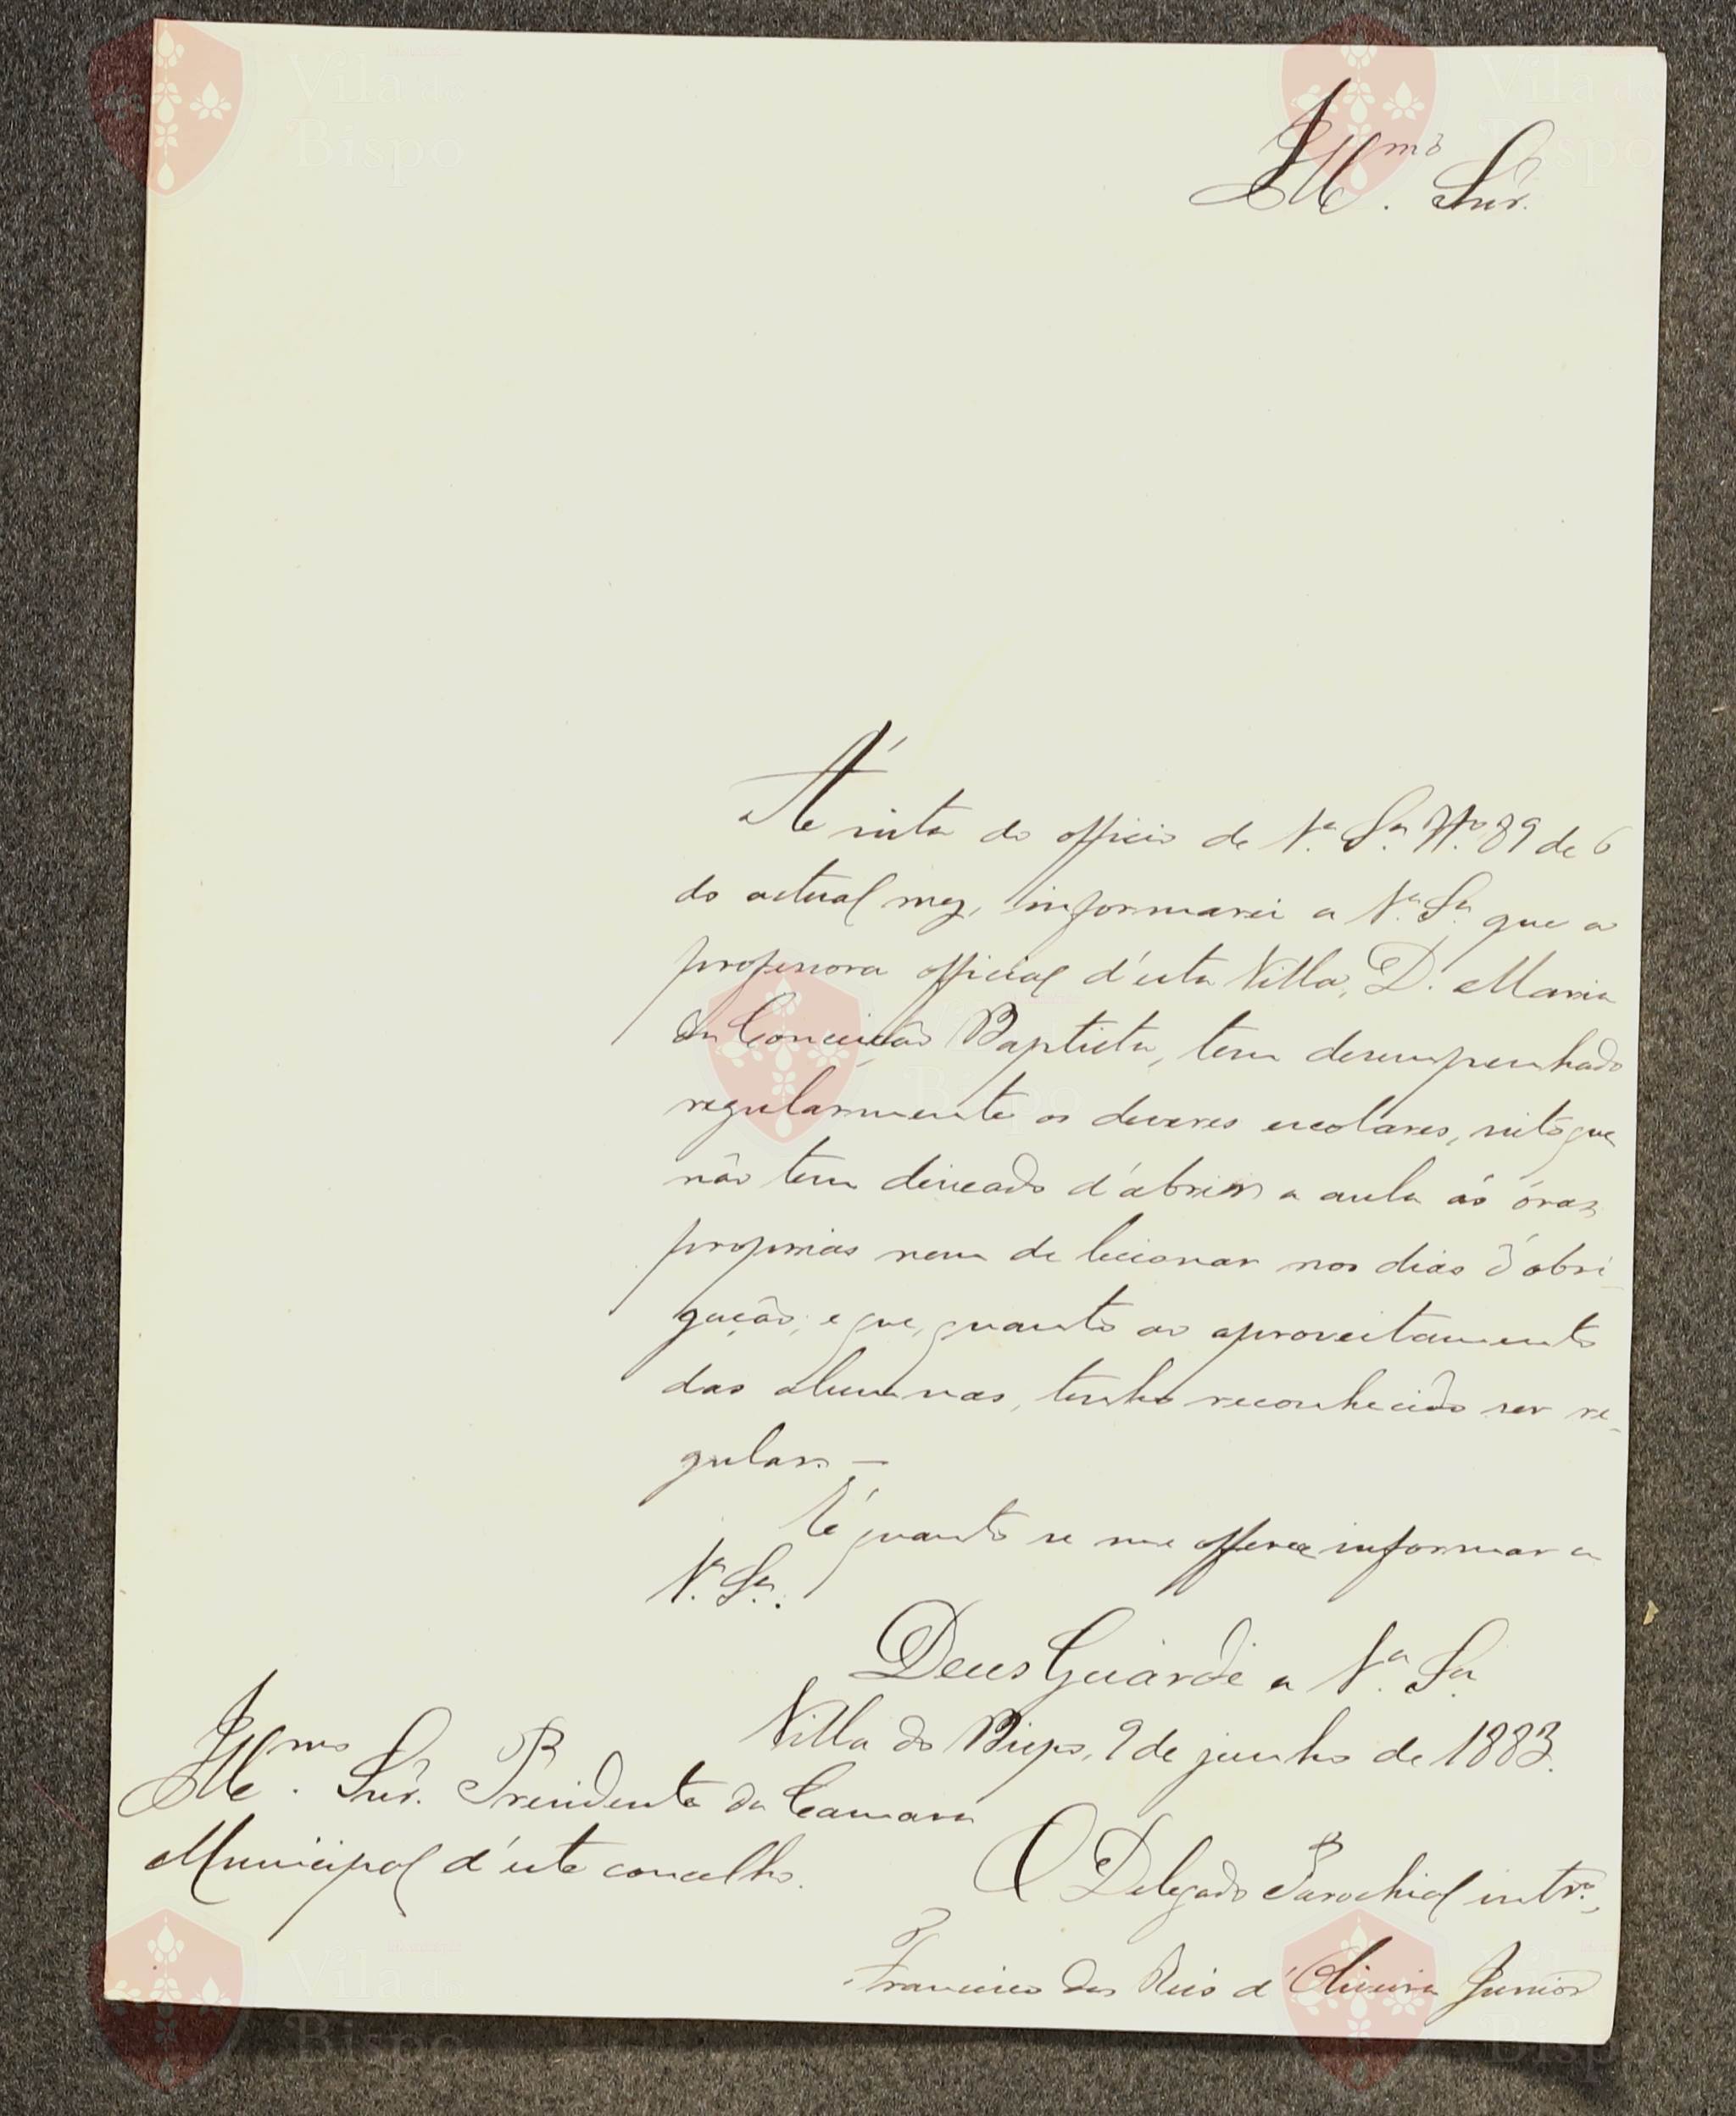 Ill.mo Snr.
Á vista do officio de V.a S.a N.o 89 de 6
do actual mez, informarei a V.a S.a que a
professora official d'esta Villa, D. Maria
da Conceição Baptista, tem desempenhado
regularmente os deveres escolares, visto que
não tem deixado d'abrir a aula ás óras
proprias nem de leccionar nos dias d'obri-
gação; e que, quanto ao aproveitamento
das alumnas, tenho reconhecido ser re-
gular. —
É quanto se me offerece informar a
V.a S.a.
Deus Guarde a V.a S.a
Villa do Bispo, 9 de junho de 1883.
Ill.mo Snr. Presidente da Camara
Municipal d'este concelho.
O Delegado Parochial intr.o,
Francisco dos Reis d'Oliveira Junior
Vila do
Bispo